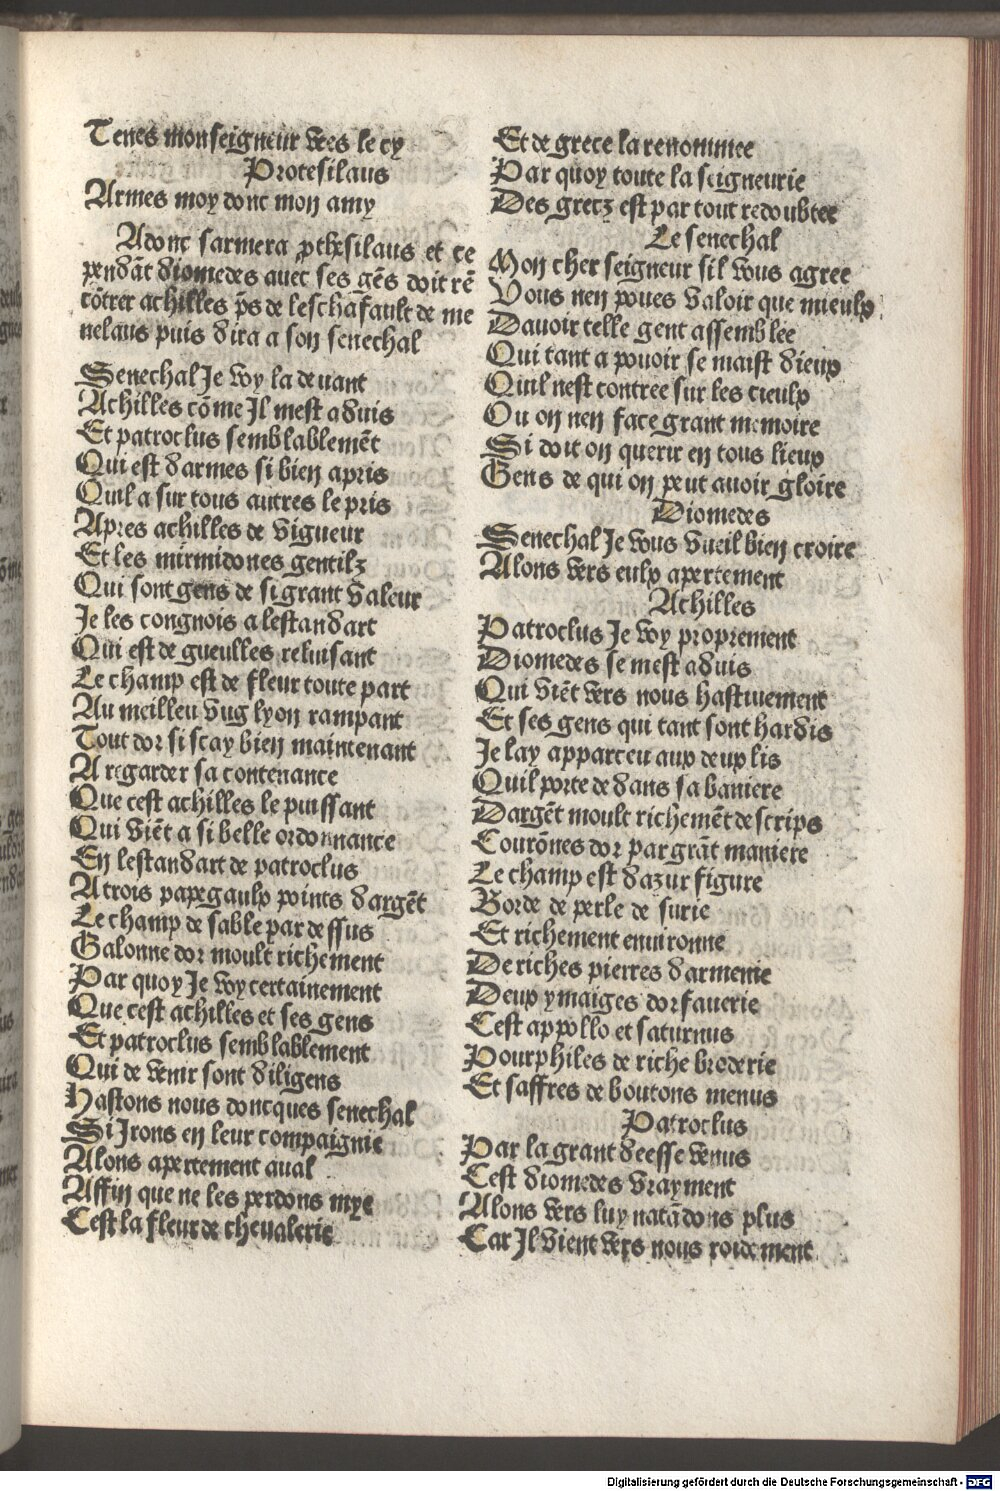 Tenes monseigneur vees le cy
Protesilaus
Armes moy donc mon amy
Adonc sarmera ꝓthesilaus et ce
pendāt diomedes auec ses gēs doit rē
cōtrer achilles ps de leschafault de me
nelaus puis dira a son senechal
Senechal Je voy la deuant
Achilles cōme Jl mest aduis
Et patroclus semblablemēt
Qui est darmes si bien apris
Quil a sur tous autres le pris
Apres achilles de vigueur
Et les mirmidones gentilz
Qui sont gens de si grant valeur
Je les congnois a lestandart
Qui est de gueulles reluisant
Le champ est de fleur toute part
Au meilleu vug lyon rampant
Tout dor si scay bien maintenant
A regarder sa contenance
Que cest achilles le puissant
Qui viēt a si belle ordonnance
En lestandart de patroclus
A trois papegaulx points dargēt
Le champ de sable par dessus
Galonne dor moult richement
Par quoy Je voy certainement
Que cest achilles et ses gens
Et patroclus semblablement
Qui de venir sont diligens
Hastons nous doncques senechal
Si Jrons en leur compaignie
Alons apertement aual
Affin que ne les perdons mye
Cest la fleur de cheualerie
Et de grece la renommee
Par quoy toute la seigneurie
Des grecz est par tout redoubtee
Le senechal
Mon cher seigneur sil vous agree
Vous nen poues valoir que mieulx
Dauoir telle gent assemblee
Qui tant a pouoir se maist dieux
Quil nest contree sur les cieulx
Ou on nen face grant memoire
Si doit on querir en tous lieux
Gens de qui on peut auoir gloire
Diomedes
Senechal Je vous vueil bien croire
Alons vers eulx apertement
Achilles
Patroclus Je voy proprement
Diomedes se mest aduis
Qui viēt vers nous hastiuement
Et ses gens qui tant sont hardis
Je lay apparceu aux deux lis
Quil porte dedans sa baniere
Dargēt moult richemēt descrips
Courōnes dor par grāt maniere
Le champ est dazur figure
Borde de perle de surie
Et richement enuironne
De riches pierres darmenie
Deux ymaiges dorfauerie
Cest appollo et saturnus
Pourphiles de riche broderie
Et saffres de boutons menus
Patroclus
Par la grant deesse venus
Cest diomedes vrayment
Alons vers luy natādons plus
Car Jl vient vers nous roidement
Digitalisierung gefördert durch die Deutsche Forschungsgemeinschaft - DFG